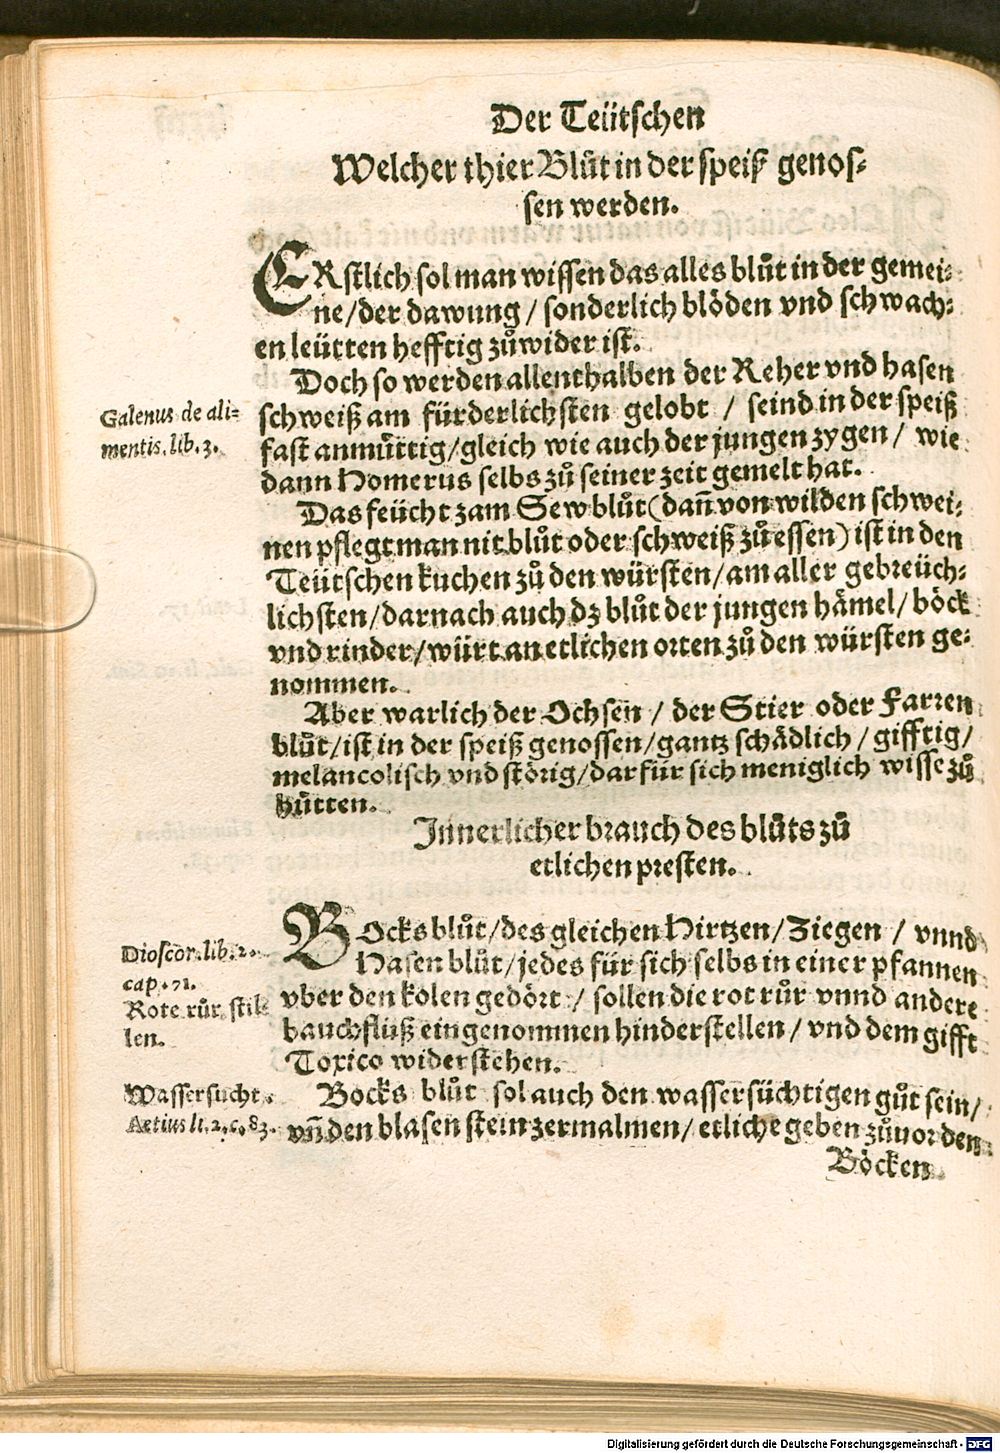 Der Teütschen
Welcher thier Blůt in der speiß genos-
sen werden.
ERstlich sol man wissen das alles blůt in der gemei-
ne/der dawung / sonderlich blöden vnd schwach-
en leütten hefftig zůwider ist.
Doch so werden allenthalben der Reher vnd hasen
Galenus de ali-
mentis. lib. 3.
schweiß am fürderlichsten gelobt / seind in der speiß
fast anmüttig/gleich wie auch der jungen zygen / wie
dann Homerus selbs zů seiner zeit gemelt hat.
Das feücht zam Sewblůt(dañ von wilden schwei-
nen pflegt man nit blůt oder schweiß zů essen) ist in den
Teütschen kuchen zů den würsten/am aller gebreüch-
lichsten/darnach auch dz blůt der jungen hämel/böck
vnd rinder/würt an etlichen orten zů den würsten ge-
nommen.
Aber warlich der Ochsen / der Stier oder Farren
blůt/ist in der speiß genossen/gantz schädlich / gifftig/
melancolisch vnd störig/darfür sich meniglich wisse zů
hütten.
Jnnerlicher brauch des blůts zů
etlichen presten.
Dioscor. lib. 2.
cap. 71.
Rote růr stil-
len.
BOcks blůt/des gleichen Hirtzen/Ziegen / vnnd
Hasen blůt/jedes für sich selbs in einer pfannen
vber den kolen gedört / sollen die rot růr vnnd andere
bauchflüß eingenommen hinderstellen / vnd dem gifft
Toxico widerstehen.
Wassersucht.
Aetius li. 2. c. 83.
Bocks blůt sol auch den wassersüchtigen gůt sein/
vñ den blasen stein zermalmen/ etliche geben zůuor den
Böcken
Digitalisierung gefördert durch die Deutsche Forschungsgemeinschaft - DFG